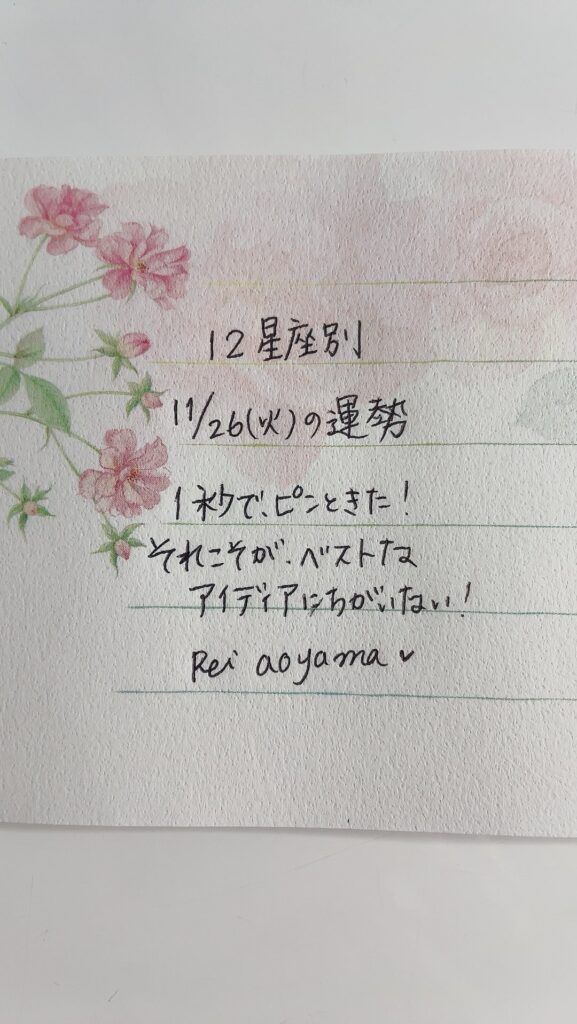 12星座別
11/26(火)の運勢
1秒で、ピンときた!
それこそが、ベストな
アイディアにちがいない!
Rei aoyama ♥